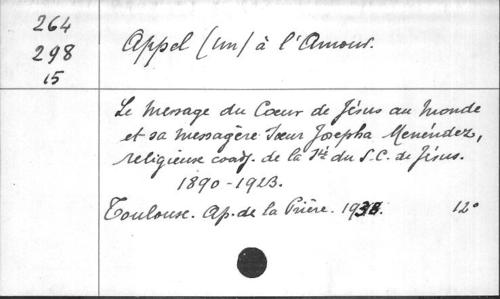 264
298
15
Appel (un) à l'Amour.
Le Message du Cœur de Jésus au Monde
et sa Messagère Sœur Josepha Menéndez,
religieuse coadj. de la Sté du S.C. de Jésus.
1890-1923.
Toulouse. Ap. de la Prière. 12°